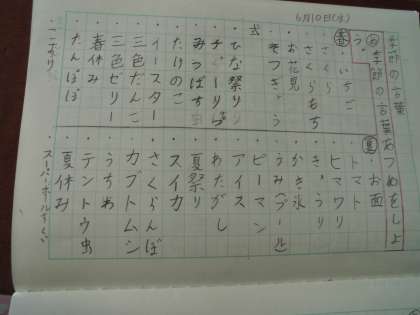 6月10日(水)
季節の言葉
め 季節の言葉あつめをしよ
う。
春
・いちご
・さくら
・さくらもち
・お花見
・そつぎょう
式
・ひな祭り
・チューリップ
・みつばち
・たけのこ
・イースター
・三色だんご
・三色ゼリー
・春休み
・たんぽぽ
夏
・お面
・トマト
・ヒマワリ
・きゅうり
・かき氷
・うみ(プール)
・ピーマン
・アイス
・わたがし
・夏祭り
・スイカ
・さくらんぼ
・カブトムシ
・うちわ
・テントウ虫
・夏休み
・スーパーボールすくい